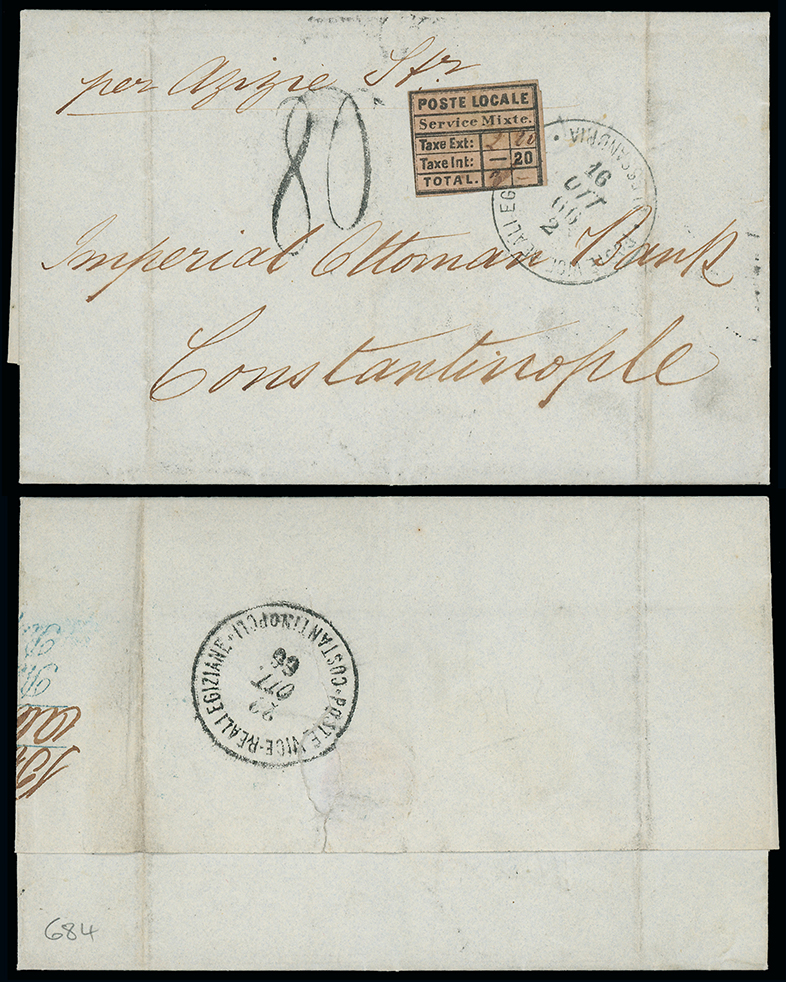 per Azizie Str
80
POSTE LOCALE
Service Mixte.
Taxe Ext: 2 20
Taxe Int: — 20
TOTAL. 3 —
POSTE VICE-REALI EGIZIANE ALESSANDRIA
16
OTT
66
2
Imperial Ottoman Bank
Constantinople
POSTE VICE-REALI EGIZIANE
COSTANTINOPOLI
22
OTT
66
684